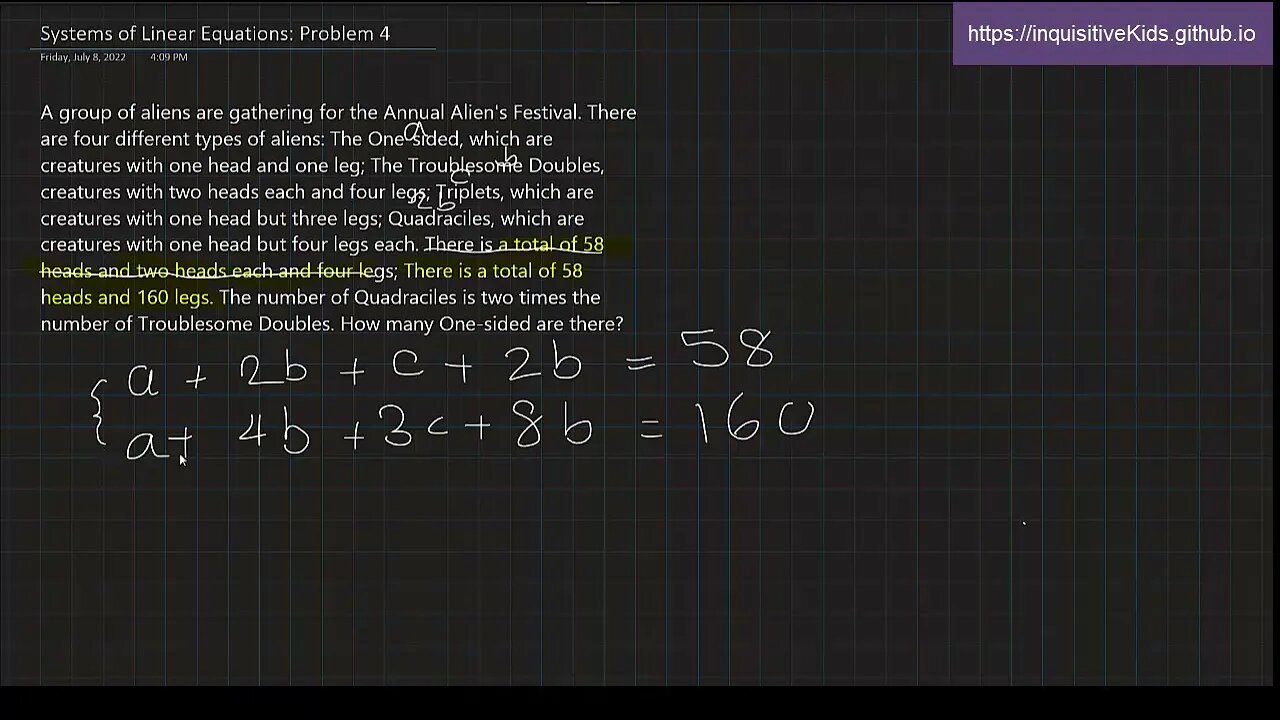 Systems of Linear Equations: Problem 4
https://inquisitiveKids.github.io
Friday, July 8, 2022 4:09 PM
A group of aliens are gathering for the Annual Alien's Festival. There
a
are four different types of aliens: The One-sided, which are
b
creatures with one head and one leg; The Troublesome Doubles,
c
creatures with two heads each and four legs; Triplets, which are
2b
creatures with one head but three legs; Quadraciles, which are
creatures with one head but four legs each. There is a total of 58
heads and two heads each and four legs; There is a total of 58
heads and 160 legs. The number of Quadraciles is two times the
number of Troublesome Doubles. How many One-sided are there?
a + 2b + c + 2b = 58
a + 4b + 3c + 8b = 160